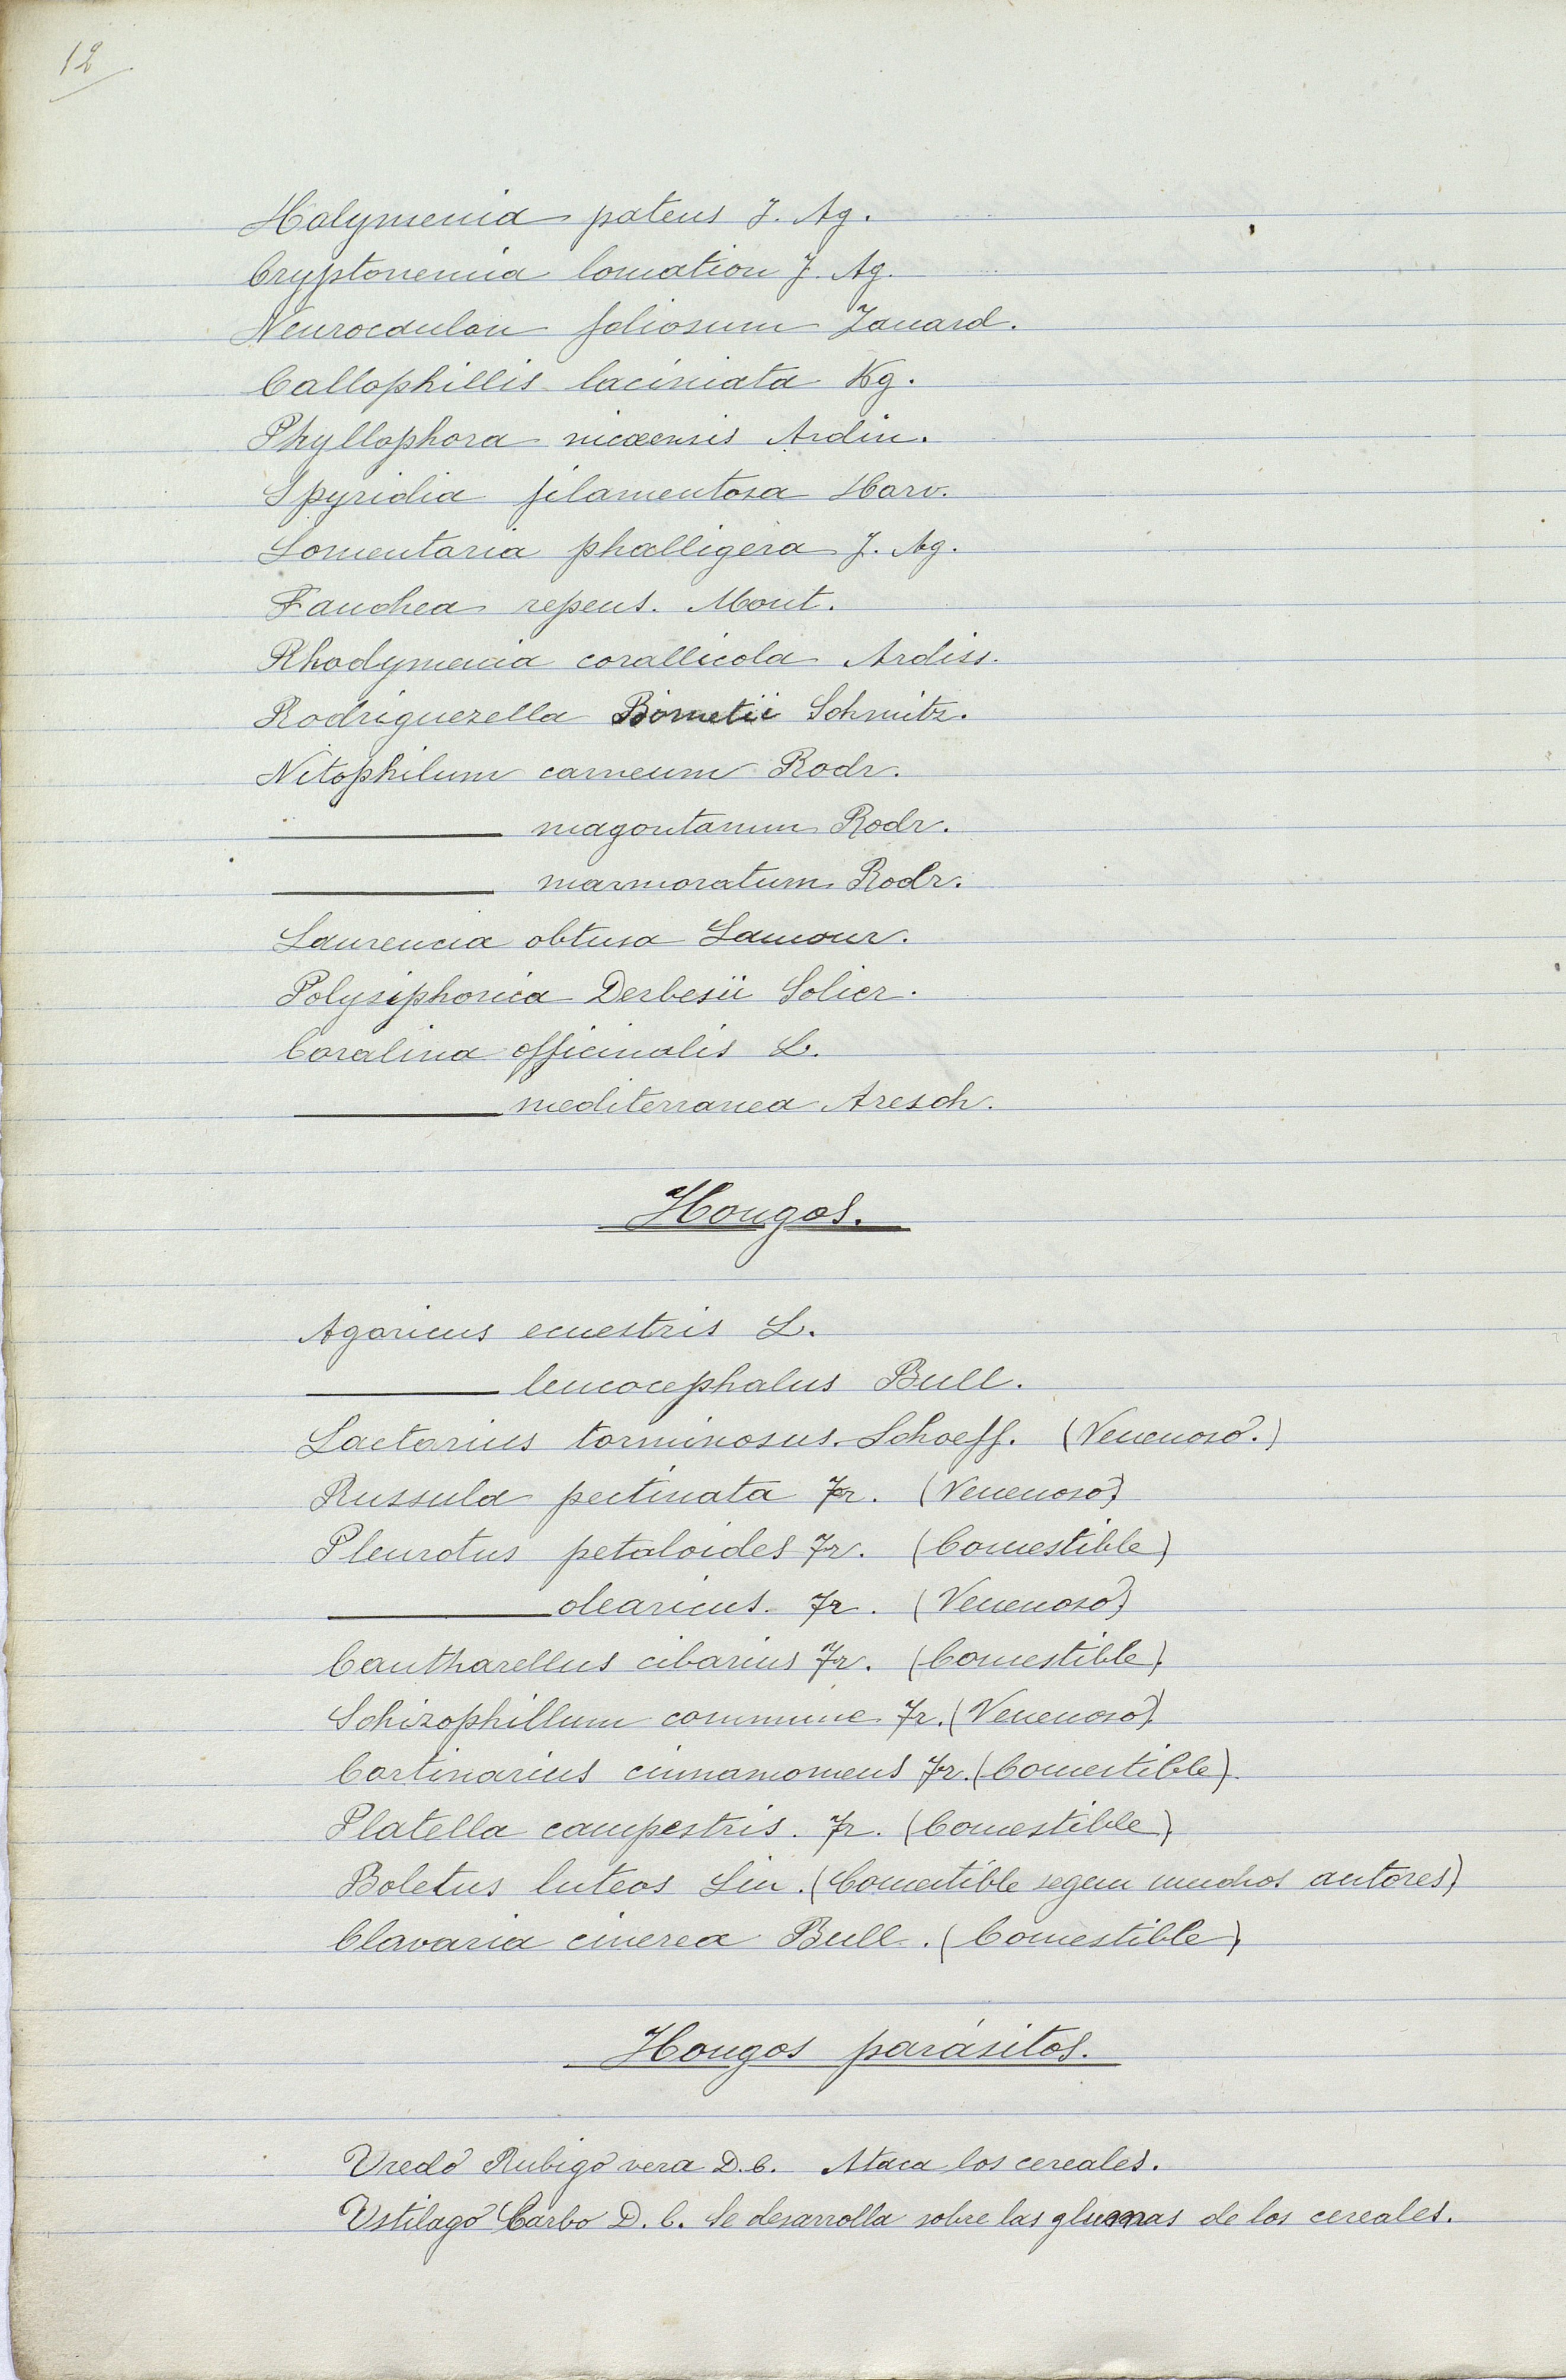 12
Halymenia patens J. Ag.
Cryptonemia lomation J. Ag.
Neurocaulon foliosum Zanard.
Callophillis laciniata Kg.
Phyllophora nicæensis Ardin.
Spyridia filamentosa Harv.
Lomentaria phalligera J. Ag.
Fauchea repens. Mont.
Rhodymenia corallicola Ardiss.
Rodriguezella Bornetii Schmitz.
Nitophilum carneum Rodr.
——— magontanum Rodr.
——— marmoratum Rodr.
Laurencia obtusa Lamour.
Polysiphonia Derbesii Solier.
Coralina officinalis L.
——— mediterranea Aresch.
Hongos.
Agaricus ecuestris L.
——— leucocephalus Bull.
Lactarius torminosus. Schoeff. (Venenoso.)
Russula pectinata Fr. (Venenoso)
Pleurotus petaloides Fr. (Comestible)
——— olearicus. Fr. (Venenoso)
Cantharellus cibarius Fr. (Comestible)
Schizophillum commune Fr. (Venenoso)
Cortinarius cinnamomeus Fr. (Comestible)
Platella campestris. Fr. (Comestible)
Boletus luteos Lin. (Comestible segun muchos autores)
Clavaria cinerea Bull. (Comestible)
Hongos parásitos.
Uredo Rubigo vera D.C. Ataca los cereales.
Ustilago Carbo D.C. Se desarrolla sobre las glumas de los cereales.